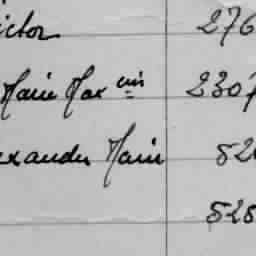 ictor 276
Marie Max cin 2307
exandre Marie 52
525